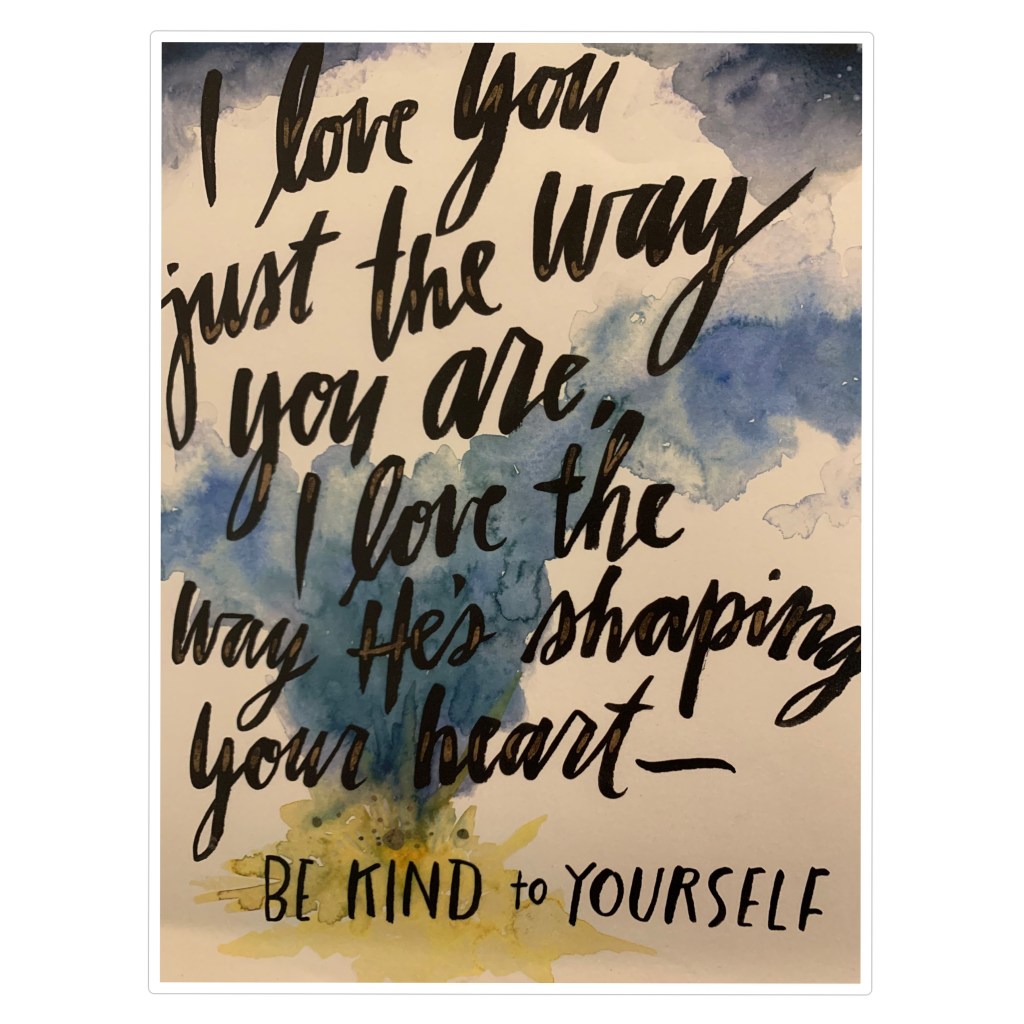 I love you
just the way
you are.
I love the
way He's shaping
your heart—
BE KIND to YOURSELF